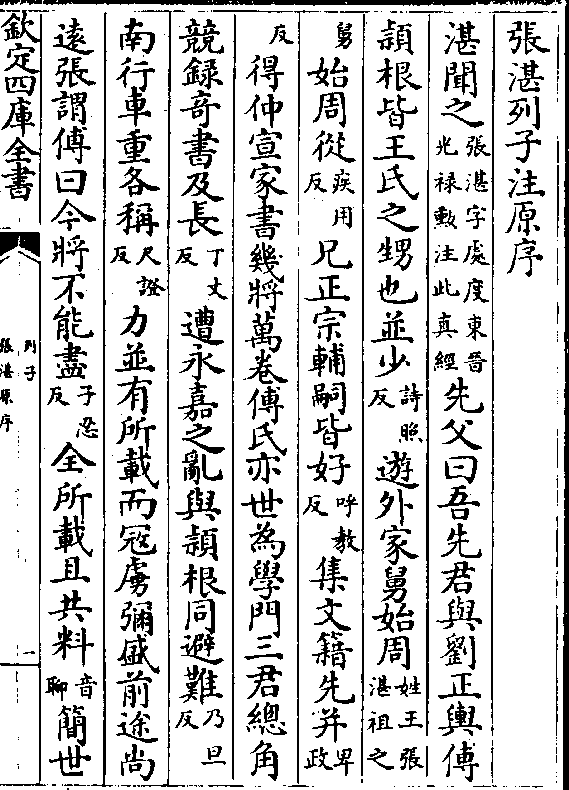 張湛列子注原序
湛聞之張湛字處度東晉光禄勲注此真經先父曰吾先君與劉正輿傅
頴根皆王氏之甥也並少詩照反遊外家舅始周姓王張湛祖之
舅始周從疾用反兄正宗輔嗣皆好呼教反集文籍先并卑政
反得仲宣家書幾將萬卷傅氏亦世為學門三君總角
競録竒書及長丁丈反遭永嘉之亂與頴根同避難乃旦反
南行車重各稱尺證反力並有所載而冦虜彌盛前途尚
逺張謂傅曰今將不能盡子忍反全所載且共料音聊簡世
欽定四庫全書
列子
張湛原序
一